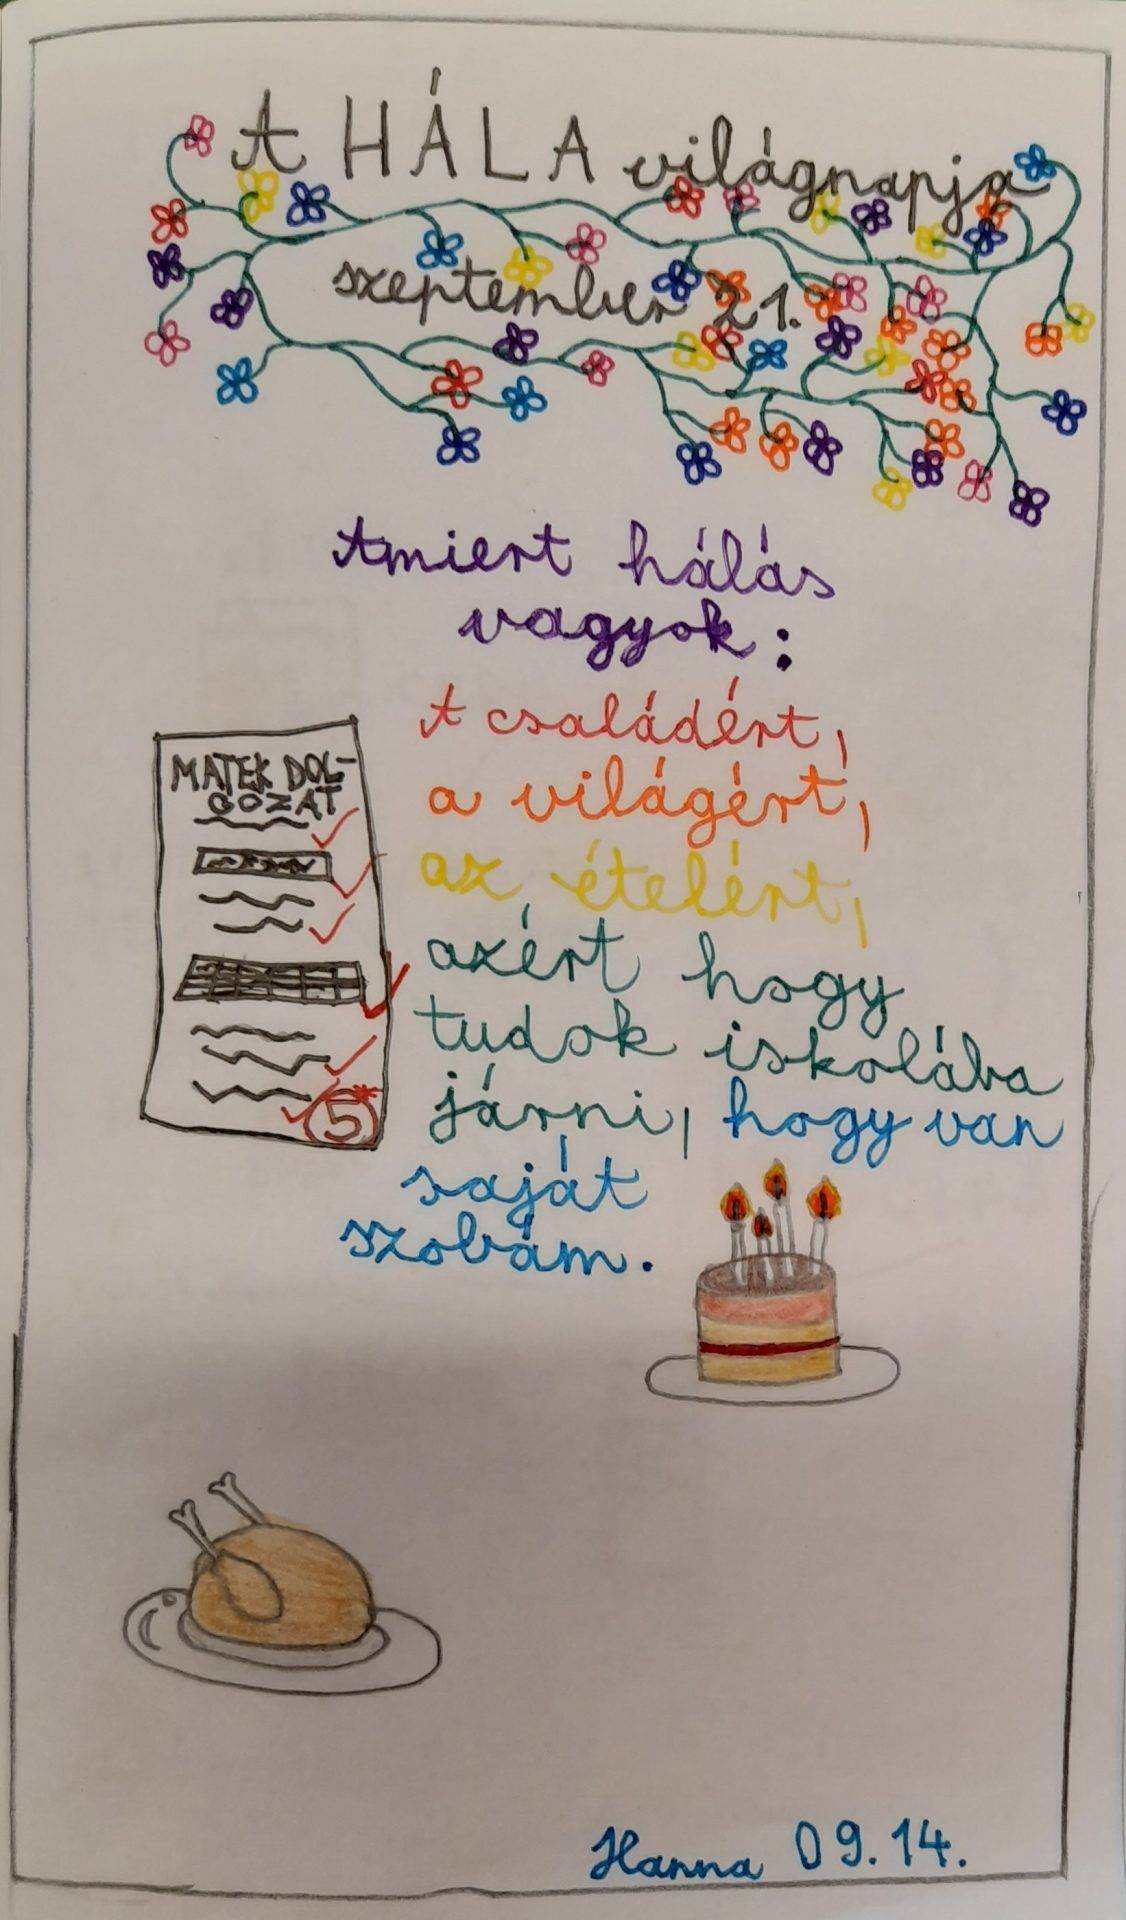 A HÁLA világnapja
szeptember 21.
Amiert hálás
vagyok:
A családért,
a világért,
az ételért,
azért hogy
tudok iskolába
járni, hogy van
saját
szobám.
MATEK DOL-
GOZAT
5*
Hanna 09.14.